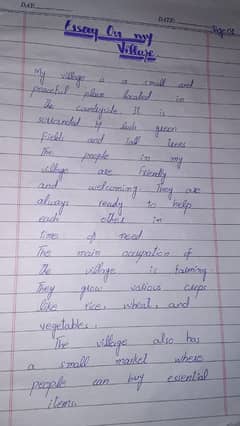 DATE:
DATE:
Page 01
Essay On my
Village
My village is a small and
peaceful place located in
the countryside. It is
surrounded by lush green
fields and tall trees
The people in my
village are friendly
and welcoming. They are
always ready to help
each other in
time of need
The main occupation of
the village is farming
They grow various crops
like rice, wheat, and
vegetables.
The village also has
a small market where
people can buy essential
items.